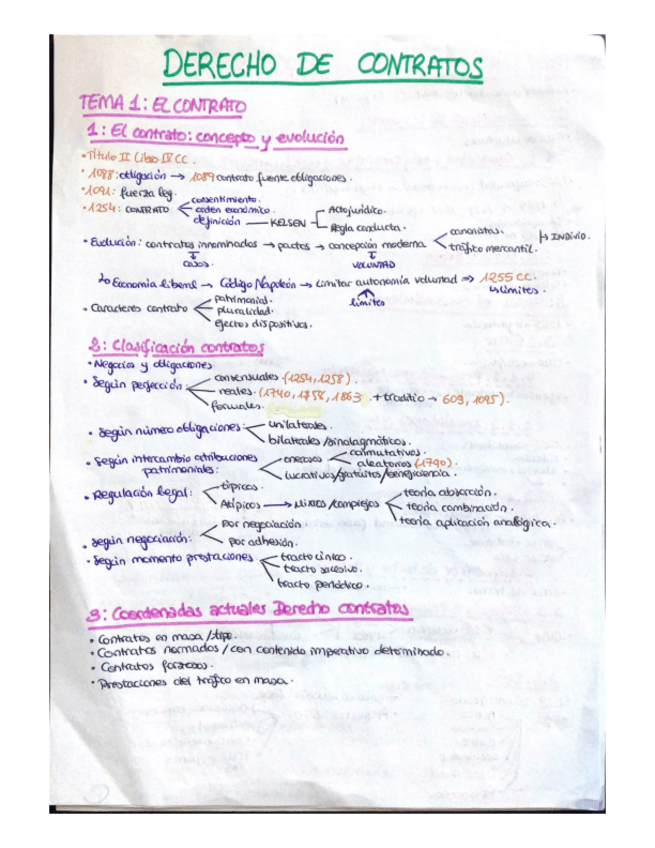 DERECHO DE CONTRATOS
TEMA 1: EL CONTRATO
1: El contrato: concepto y evolución
• Título II Libro IV CC.
• 1088: obligación → 1089 contrato fuente obligaciones.
• 1091: fuerza ley.
• 1254: CONTRATO
consentimiento.
orden económico.
definición — KELSEN
Acto jurídico.
Regla conducta.
• Evolución: contratos innominados → pactos → concepción moderna
canonistas.
tráfico mercantil.
INDIVID.
casos.
VOLUNTAD
Economía liberal → Código Napoleón → limitar autonomía voluntad ⇒ 1255 CC.
límites
↳ límites.
• Caracteres contrato
patrimonial.
pluralidad.
efectos dispositivos.
2: Clasificación contratos
• Negocios y obligaciones.
• Según perfección:
consensuales (1254, 1258).
reales. (1740, 1758, 1863 + traditio → 609, 1095).
formales.
• Según número obligaciones:
unilaterales.
bilaterales/sinalagmáticos.
• Según intercambio atribuciones patrimoniales:
onerosos
conmutativos.
aleatorios (1790).
lucrativos/gratuitos/beneficencia.
• Regulación legal:
típicos.
Atípicos → Mixtos/complejos
teoría absorción.
teoría combinación.
teoría aplicación analógica.
• Según negociación:
por negociación.
por adhesión.
• Según momento prestaciones
tracto único.
tracto sucesivo.
tracto periódico.
3: Coordenadas actuales Derecho contratos
• Contratos en masa/tipo.
• Contratos normados/con contenido imperativo determinado.
• Contratos forzosos.
• Prestaciones del tráfico en masa.